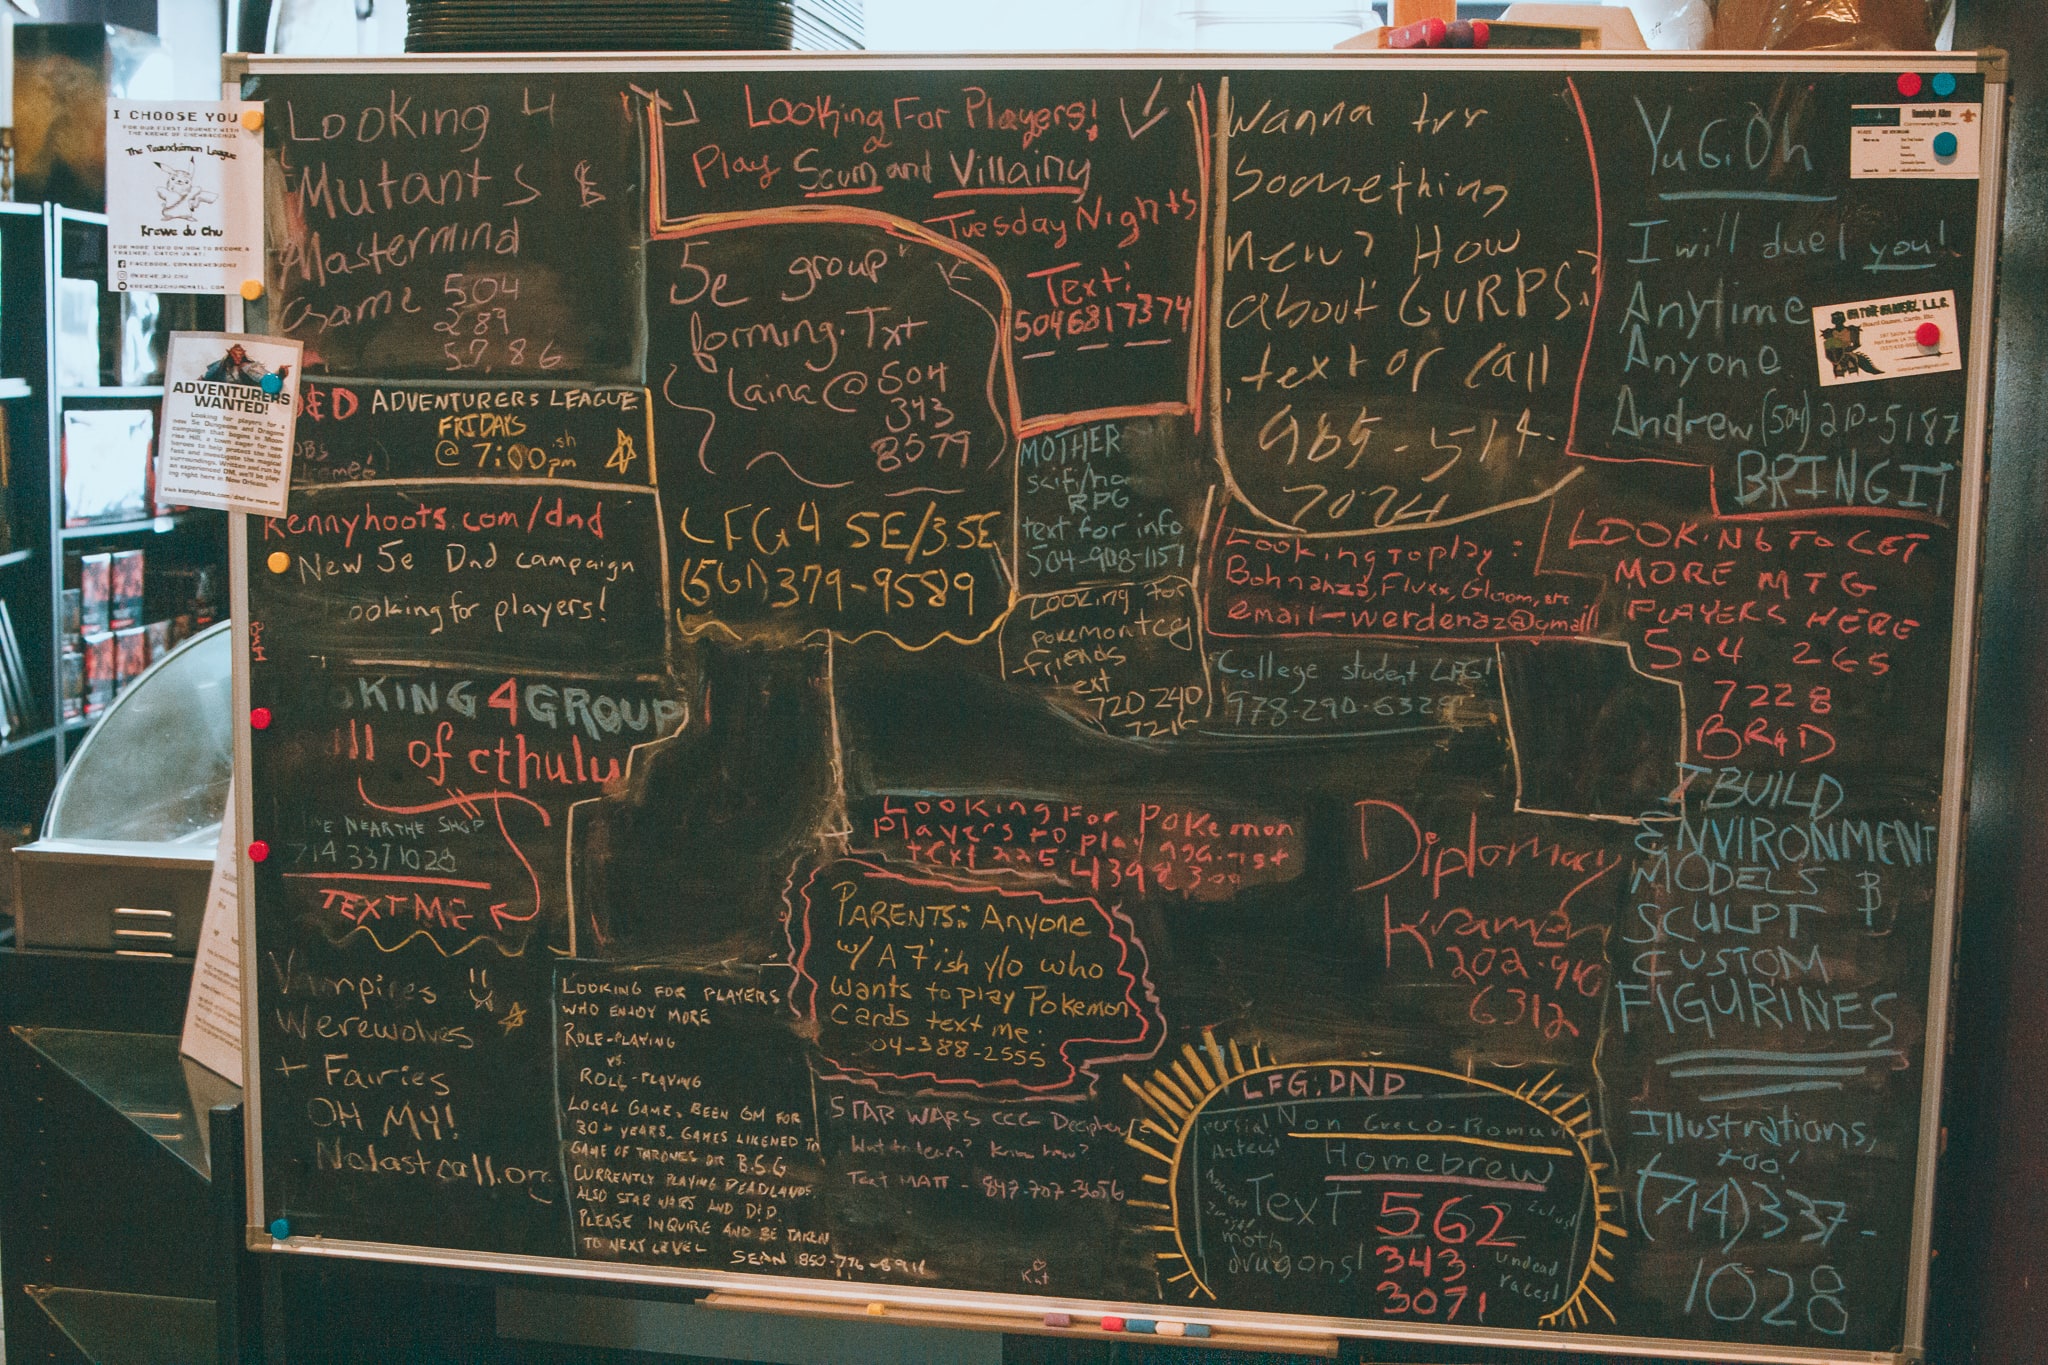 I CHOOSE YOU
FOR OUR FIRST JOURNEY WITH
THE KREWE OF CHEWBACCHUS
The Peauxkémon League
Krewe du Chu
FOR MORE INFO ON HOW TO BECOME A
TRAINER, CATCH US AT:
ADVENTURERS
WANTED!
Looking for players for a
new 5e Dungeons and Dragons
campaign that begins in Moon-
rise Hill, a town eager for new
heroes to help protect the land
and investigate the magical
surroundings. Written and run by
an experienced DM, we'll be play-
ing right here in New Orleans.
Visit kennyhoots.com/dnd for more info
Looking 4
Mutants &
Mastermind
Game 504
289
5786
D&D ADVENTURERS LEAGUE
FRIDAYS
@ 7:00pm ish
kennyhoots.com/dnd
New 5e Dnd campaign
ooking for players!
KING 4 GROUP
ll of cthulu
NEAR THE SHOP
714 337 1028
TEXT ME
Vampires
Werewolves
+ Fairies
OH MY!
Nolastcall.org
Looking For Players!
Play Scum and Villainy
Tuesday Nights
Text:
504 681 7374
5e group
forming. Txt
Laina @ 504
343
8579
LFG 4 5E/3.5E
(561) 379-9589
MOTHER
RPG
text for info
504-908-1151
Looking for
pokemon tcg
friends
ext
720 240
Wanna try
Something
new? How
about GURPS.
text or call
985-514-
7024
Looking to play:
Bohnanza, Fluxx, Gloom, etc
email-werdenaz@gmail
College student LFG!
978-290-6328
YuGiOh
I will duel you!
Anytime
Anyone.
Andrew (504) 210-5187
BRING IT
LOOKING TO GET
MORE MTG
PLAYERS HERE
504 265
7228
BRAD
Looking For Pokemon
Players to play against
text 225 4398300
PARENTS: Anyone
w/ A 7'ish y/o who
wants to play Pokemon
Cards text me:
04-388-2555
Diplomacy
Kramer
202-910
6312
I BUILD
ENVIRONMENT
MODELS &
SCULPT
CUSTOM
FIGURINES
Illustrations,
too!
(714) 337-
1028
LOOKING FOR PLAYERS
WHO ENJOY MORE
ROLE-PLAYING
vs.
ROLL-PLAYING
LOCAL GAME. BEEN GM FOR
30+ YEARS. GAMES LIKENED TO
GAME OF THRONES OR B.S.G
CURRENTLY PLAYING DEADLANDS.
ALSO STAR WARS AND D&D.
PLEASE INQUIRE AND BE TAKEN
TO NEXT LEVEL SEAN 850-776-8911
STAR WARS CCG Decipher
Want to learn? Know how?
Text MATT - 847-707-3656
Kat
LFG: DND
Non Greco-Roman
Homebrew
Text 562
343
3071
moth
dragons!
undead
races!